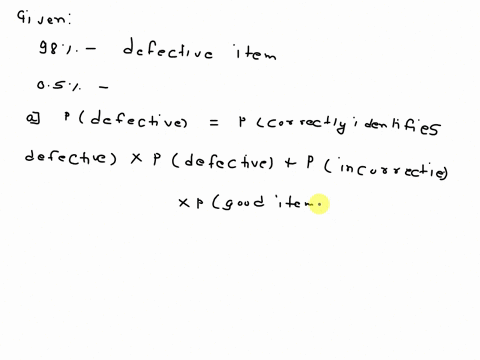 Given:
98%. - defective item
0.5%. -
a] P(defective) = P(correctly identifies
defective) × P(defective) + P(incorrectie)
× P(good item.